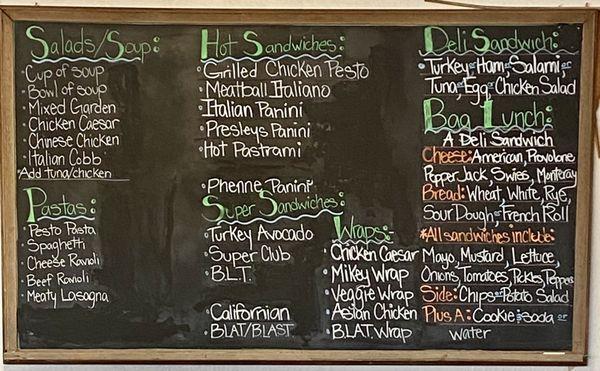 Salads/Soup:
• Cup of soup
• Bowl of soup
• Mixed Garden
• Chicken Caesar
• Chinese Chicken
• Italian Cobb
*Add tuna/chicken
Pastas:
• Pesto Pasta
• Spaghetti
• Cheese Ravioli
• Beef Ravioli
• Meaty Lasagna
Hot Sandwiches:
• Grilled Chicken Pesto
• Meatball Italiano
• Italian Panini
• Presleys Panini
• Hot Pastrami
• Phenne Panini
Super Sandwiches:
• Turkey Avocado
• Super Club
• B.L.T.
• Californian
• BLAT/BLAST
Wraps:
• Chicken Caesar
• Mikey Wrap
• Veggie Wrap
• Asian Chicken
• B.L.A.T. Wrap
Deli Sandwich:
• Turkey or Ham, Salami, or
Tuna, Egg or Chicken Salad
Bag Lunch:
A Deli Sandwich
Cheese: American, Provolone
Pepper Jack, Swiss, Monteray
Bread: Wheat, White, Rye,
Sour Dough, or French Roll
*All sandwiches include:
Mayo, Mustard, Lettuce,
Onions, Tomatoes, Pickles, Peppers
Side: Chips or Potato Salad
Plus A: Cookie & soda or
Water